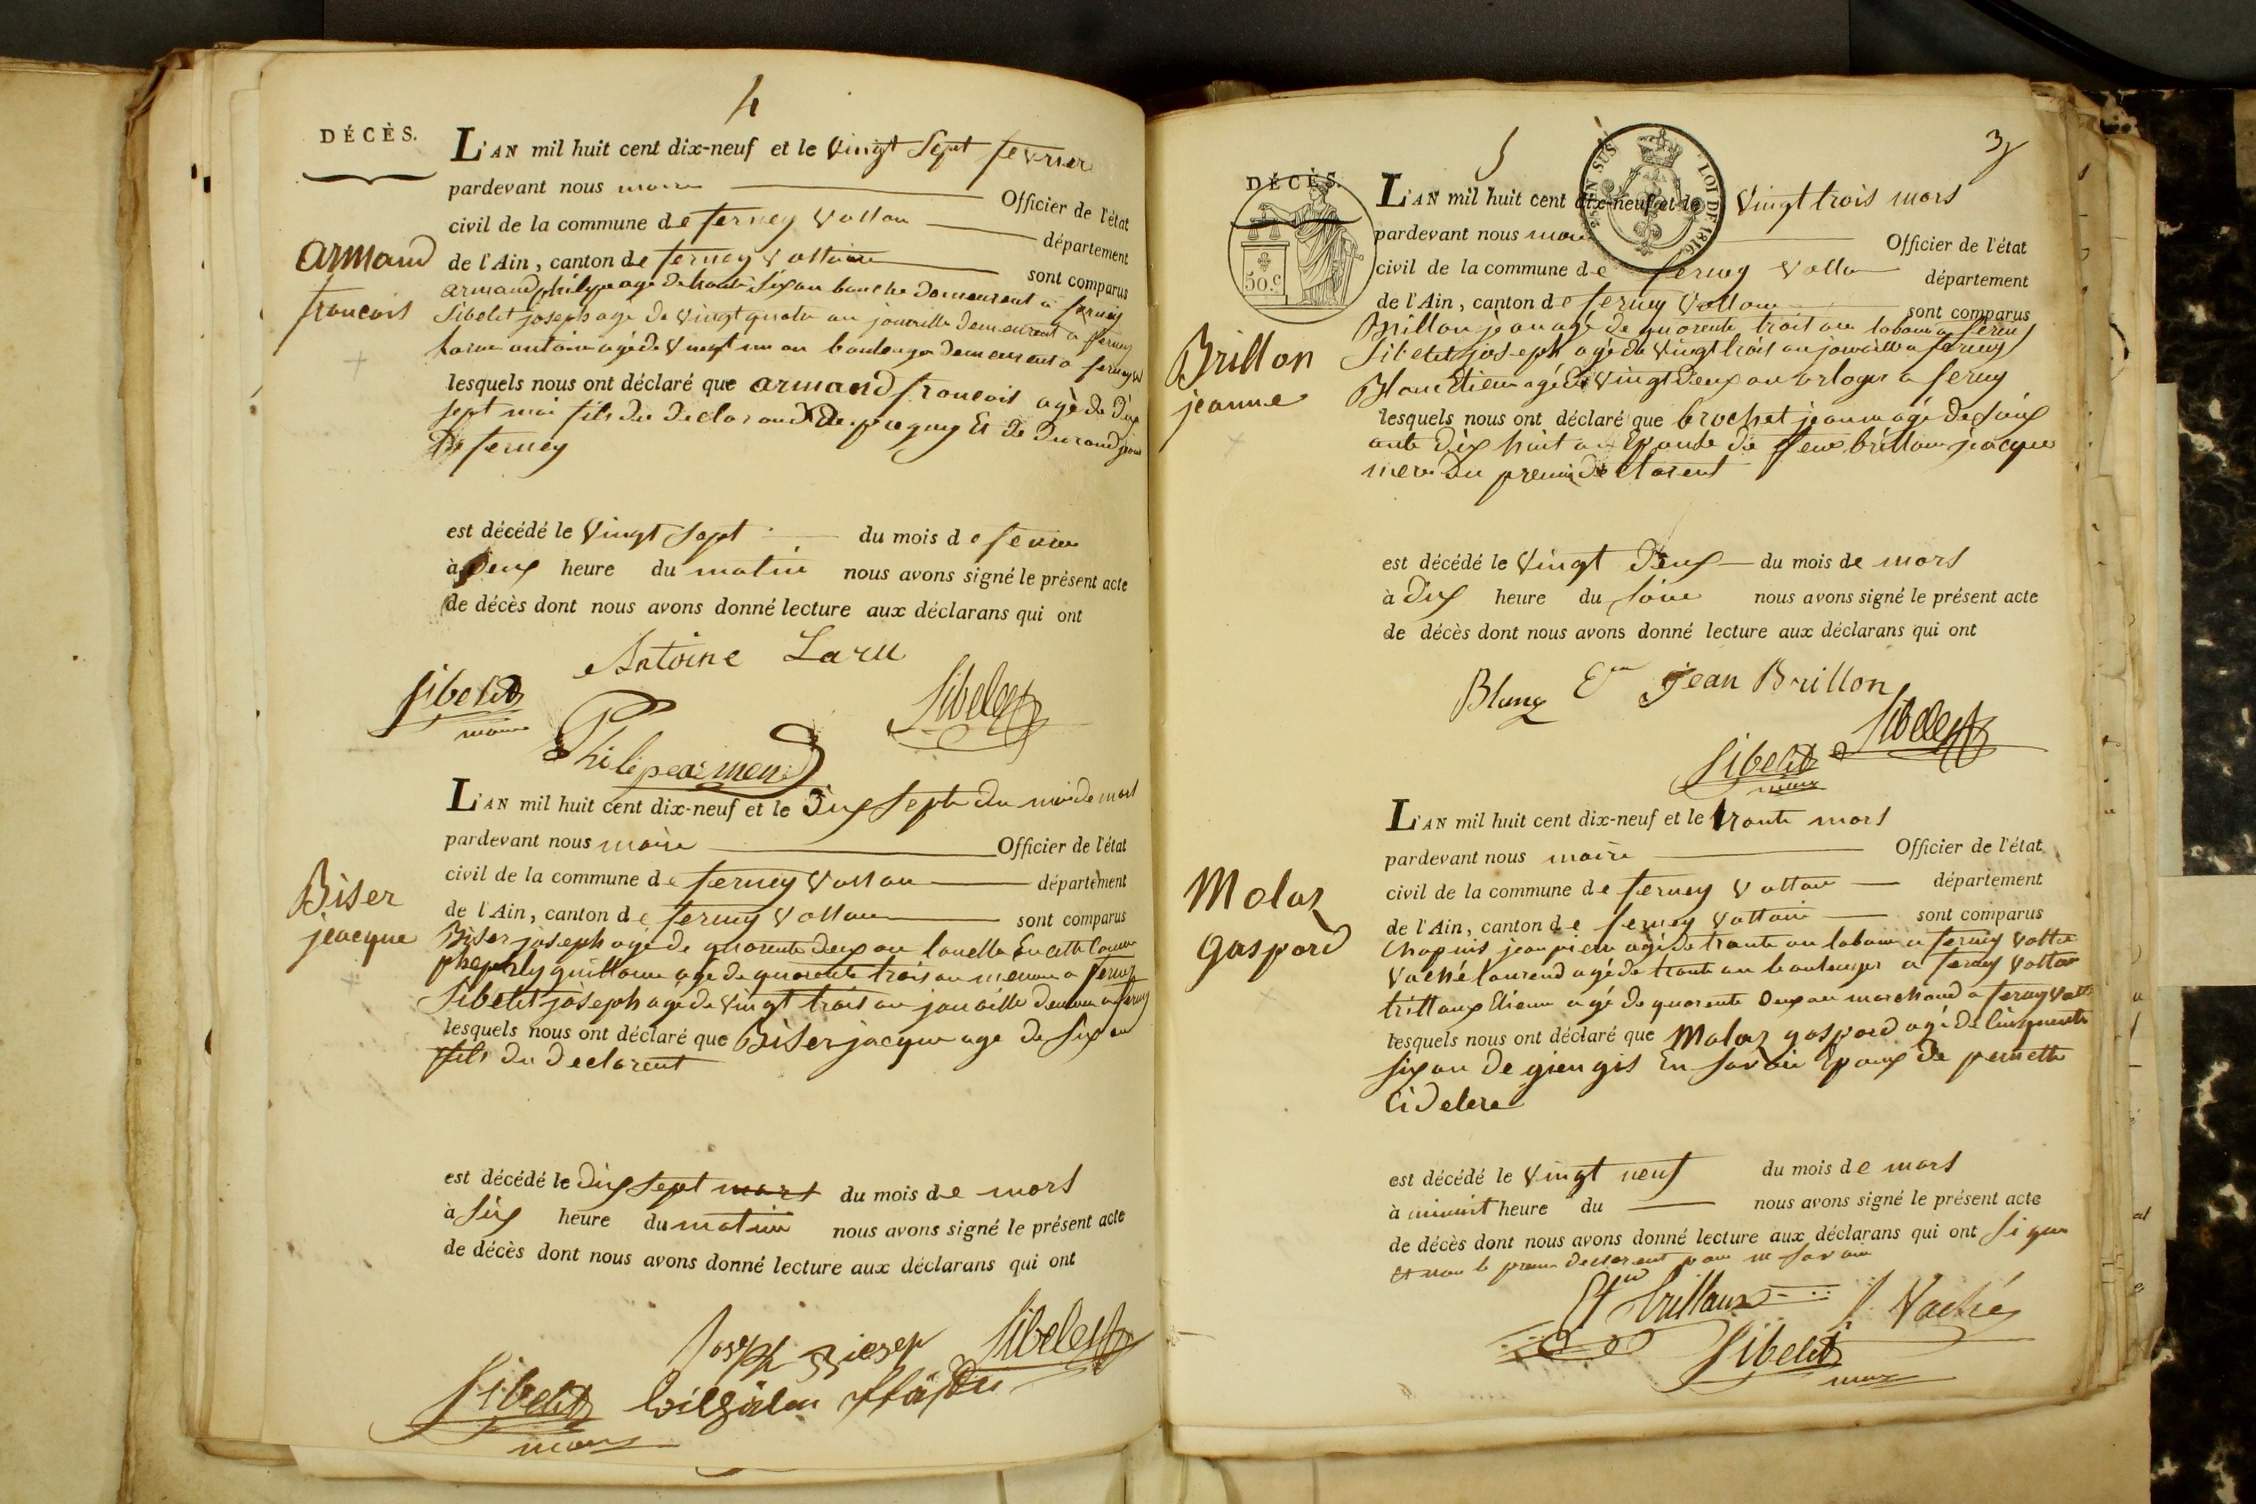 4
DÉCÈS.
L'AN mil huit cent dix-neuf et le vingt sept fevrier
pardevant nous maire Officier de l'état
civil de la commune de ferney voltaire département
de l'Ain, canton de ferney voltaire sont comparus
armand
francois
armand philype age de trante six an bouche demeurent a ferney
Sibelit joseph age de vingt quatre an jouaille demeurent a ferney
antoine agé de vingt un an boulenger demeurent a ferney
lesquels nous ont déclaré que armand francois agé de dix
sept moi fils du declarand de pregny et de durand
de ferney
est décédé le vingt sept du mois de fevrier
à deux heure du matin nous avons signé le présent acte
de décès dont nous avons donné lecture aux déclarans qui ont
Antoine Laru
Sibelit Sibelit
maire
Philipe armand
L'AN mil huit cent dix-neuf et le dix sept du moi de mars
pardevant nous maire Officier de l'état
civil de la commune de ferney voltaire département
de l'Ain, canton de ferney voltaire sont comparus
Biser
jeacque
Biser joseph agé de quarente deux an en cette commune
guillaume agé de quarente trois an a ferney
Sibelit joseph agé de vingt trois an jouaille demeurent a ferney
lesquels nous ont déclaré que Biser jacque age de six an
fils du declarent
est décédé le dix sept mars du mois de mars
à six heure du matin nous avons signé le présent acte
de décès dont nous avons donné lecture aux déclarans qui ont
Joseph Bieser Sibelit
Sibelit Wilhelm
maire
5
3
DÉCÈS.
50.c
LOI DE 1816
L'AN mil huit cent dix-neuf et le vingt trois mars
pardevant nous maire Officier de l'état
civil de la commune de ferney voltaire département
de l'Ain, canton de ferney voltaire sont comparus
Brillon
jeanne
Brillon jean agé de quarente trois an laboure a ferney
Sibelit joseph agé de vingt trois an jouaille a ferney
Blanc Etienne agé de vingt deux an orloger a ferney
lesquels nous ont déclaré que brochet jeanne agé de soix
ante dix huit an Epouse de feux brillon jacque
mere du premier declarent
est décédé le vingt deux du mois de mars
à dix heure du soire nous avons signé le présent acte
de décès dont nous avons donné lecture aux déclarans qui ont
Blanc Jean Brillon
Sibelit Sibelit
maire
L'AN mil huit cent dix-neuf et le trante mars
pardevant nous maire Officier de l'état
civil de la commune de ferney voltaire département
de l'Ain, canton de ferney voltaire sont comparus
Molaz
gaspard
chapuis jean pierre agé de trante an laboure a ferney voltaire
Vaché laurend agé de trante an boulenger a ferney voltaire
trittaux Etienne agé de quarente deux an marchand a ferney voltaire
lesquels nous ont déclaré que Molaz gaspard agé de cinquente
six an de gien gis en savoie Epoux de pernette
cidelere
est décédé le vingt neuf du mois de mars
à minuit heure du nous avons signé le présent acte
de décès dont nous avons donné lecture aux déclarans qui ont signe
et non le premier declarent pour ne savoir
Et trittaux Vaché
Sibelit
maire